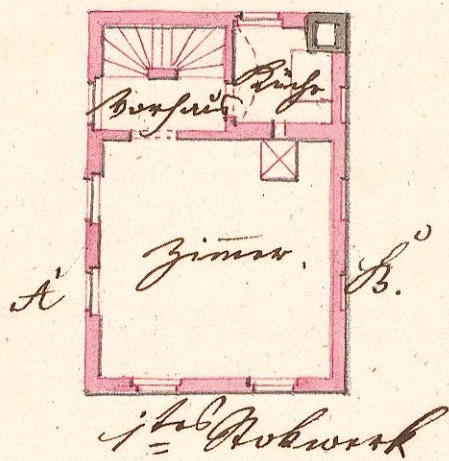 Vorhaus
Küche
Zimer.
A
B.
1tes Stokwerk